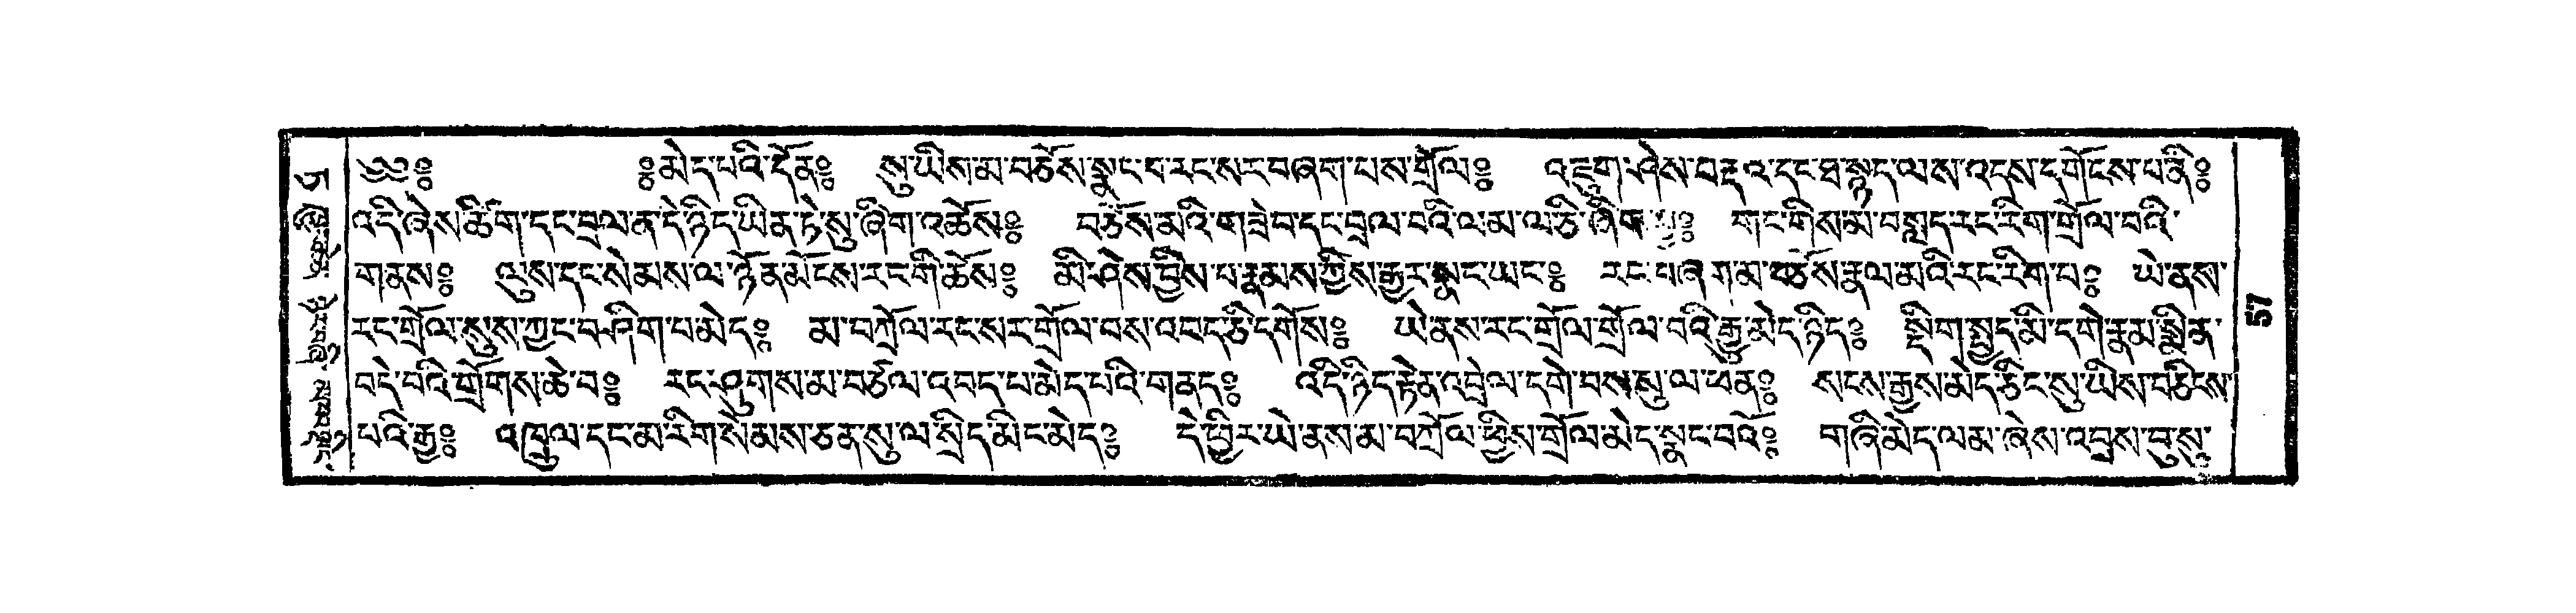 ༄༅༔ ༔མེད་པའི་དོན༔ སུ་ཡིས་མ་བཅོས་སྣང་བ་རང་སར་བཞག་པས་གྲོལ༔ འཇུག་ཤེས་བརྡའ་དང་ཐ་སྙད་ལས་འདས་དགོངས་པ་ནི༔
འདི་ཞེས་ཚིག་དང་བྲལ་ན་དེ་ཉིད་ཡིན་ཏེ་སུ་ཞིག་འཆོས༔ བཅོས་མའི་གཟེབ་དང་བྲལ་བའི་ལ་མ་ལ་ཅི་ཞིག་ གང་གིས་མ་བསླད་རང་རིག་གྲོལ་བའི་
གནས༔ ལུས་དང་སེམས་ལ་ཉོན་མོངས་རང་གི་ཆོས༔ མི་ཤེས་བྱིས་པ་རྣམས་ཀྱིས་རྒྱར་སྣང་ཡང༔ རང་བཞག་མ་བཅོས་རྣལ་མའི་རང་རིག་པ༔ ཡེ་ནས་
རང་གྲོལ་སུས་ཀྱང་བཤིག་པ་མེད༔ མ་བཀྲོལ་རང་སར་གྲོལ་བས་འབད་ཅི་དགོས༔ ཡེ་ནས་རང་གྲོལ་གྲོལ་བའི་རྒྱུ་མེད་ཉིད༔ སྡིག་སྤྱད་མི་དགེ་རྣམ་སྨིན་
བདེ་བའི་གྲོགས་ཆེ་བ༔ རང་ཤུགས་མ་བཙལ་འབད་པ་མེད་པའི་གནད༔ འདི་ཉིད་རྟེན་འབྲེལ་དགེ་བས་སུ་ལ་ཕན༔ སངས་རྒྱས་མེད་ཅིང་སུ་ཡིས་བཅིངས་
པའི་རྒྱ༔ འཁྲུལ་དང་མ་རིག་སེམས་ཅན་སུ་ལ་སྲིད་མིང་མེད༔ དེ་ཕྱིར་ཡེ་ནས་མ་བཀྲོལ་ཕྱིས་གྲོལ་མེད་སྣང་བའོ༔ གཞི་མེད་ལམ་ཞེས་འབྲས་བུ་སུ་